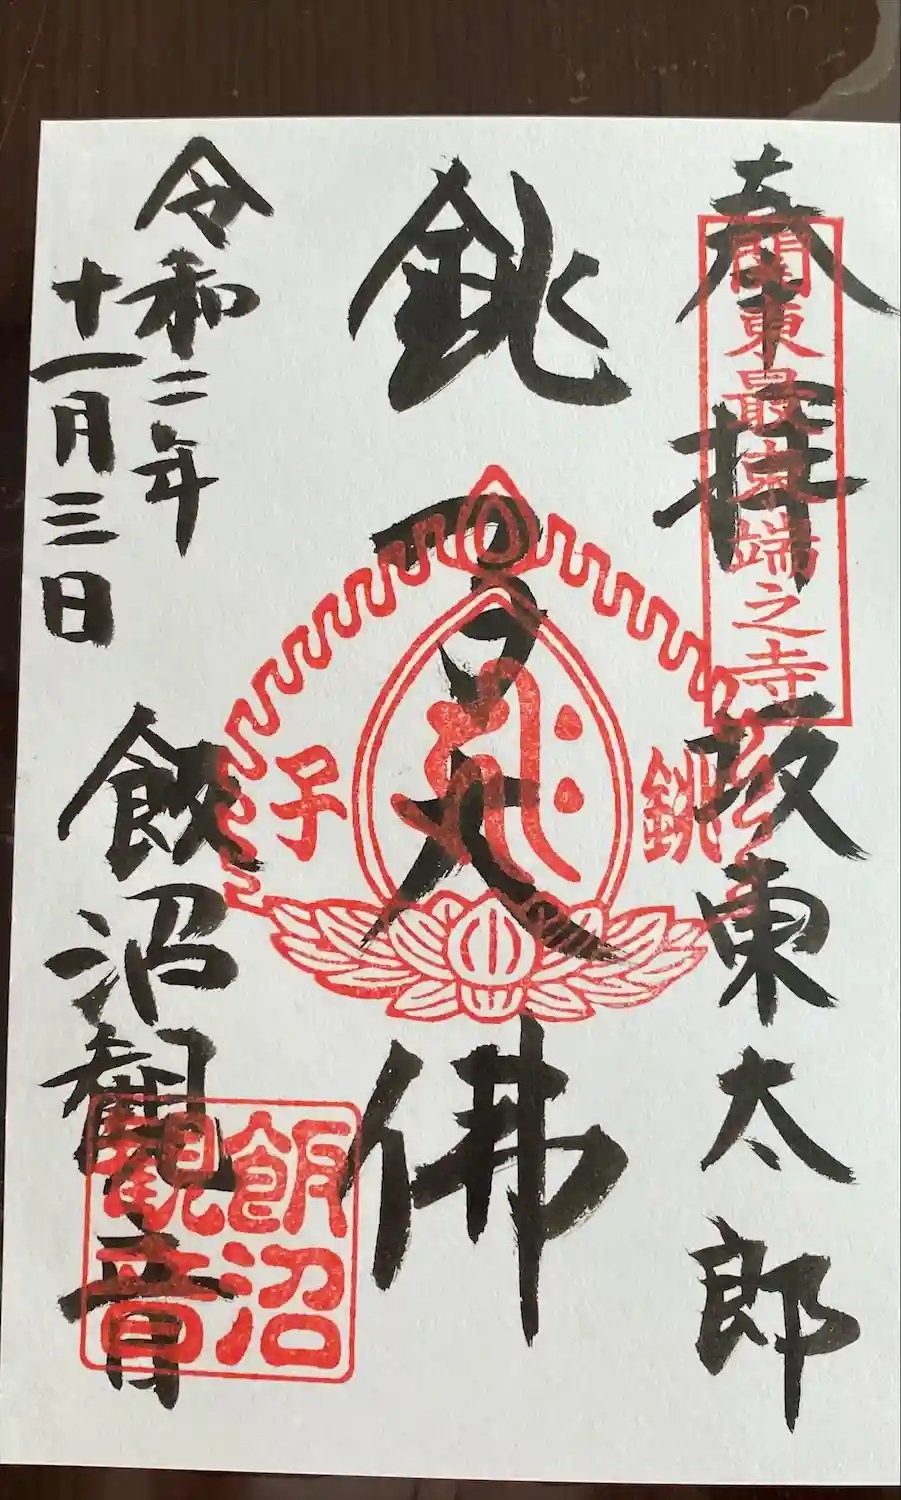 奉拝
坂東太郎
関東最東端之寺
銚子大佛
銚子
令和二年
十一月三日
飯沼観音
飯沼
観音